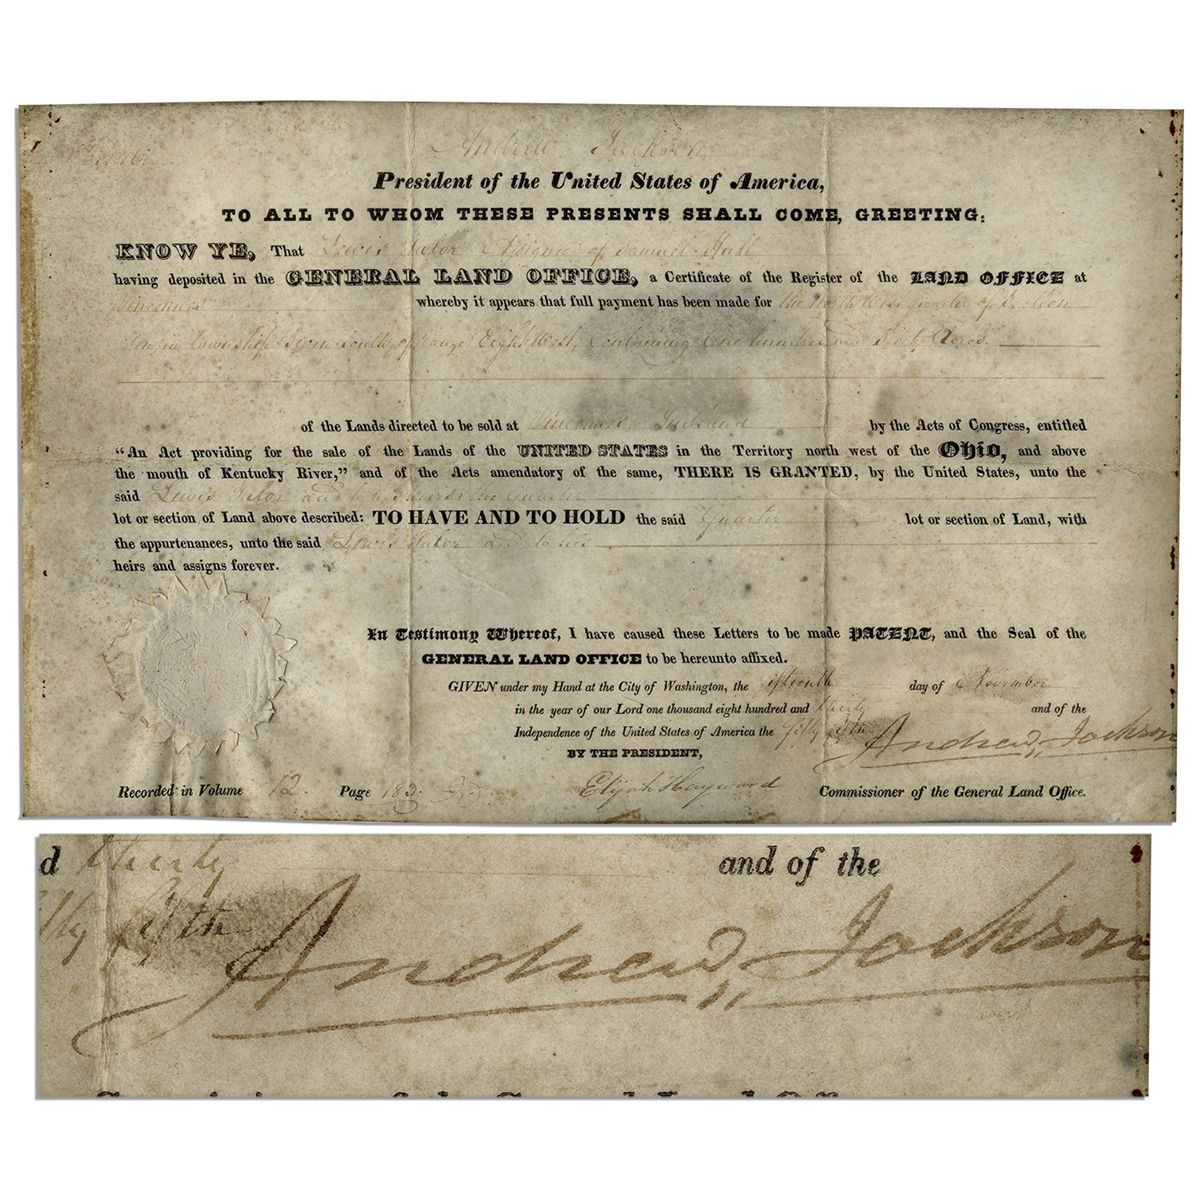 Andrew Jackson
President of the United States of America,
TO ALL TO WHOM THESE PRESENTS SHALL COME, GREETING:
KNOW YE, That Lewis Tulor Assignee of Samuel Hall
having deposited in the GENERAL LAND OFFICE, a Certificate of the Register of the LAND OFFICE at
Vincennes whereby it appears that full payment has been made for the North West quarter of Section
Ten in Township Seven South, of Range Eight West, Containing One hundred and Sixty Acres.
of the Lands directed to be sold at Vincennes, Indiana by the Acts of Congress, entitled
“An Act providing for the sale of the Lands of the UNITED STATES in the Territory north west of the Ohio, and above
the mouth of Kentucky River,” and of the Acts amendatory of the same, THERE IS GRANTED, by the United States, unto the
said Lewis Tulor and to his heirs the Quarter
lot or section of Land above described: TO HAVE AND TO HOLD the said Quarter lot or section of Land, with
the appurtenances, unto the said Lewis Tulor and to his
heirs and assigns forever.
In Testimony Whereof, I have caused these Letters to be made PATENT, and the Seal of the
GENERAL LAND OFFICE to be hereunto affixed.
GIVEN under my Hand at the City of Washington, the fifteenth day of November
in the year of our Lord one thousand eight hundred and thirty and of the
Independence of the United States of America the fifty fifth Andrew Jackson
BY THE PRESIDENT,
Recorded in Volume 12. Page 183. Elijah Hayward Commissioner of the General Land Office.
d thirty and of the
fifth Andrew Jackson